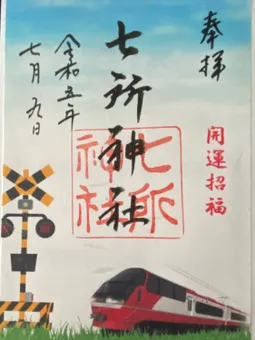 奉拝
開運招福
七所神社
七所神社
令和五年
七月九日